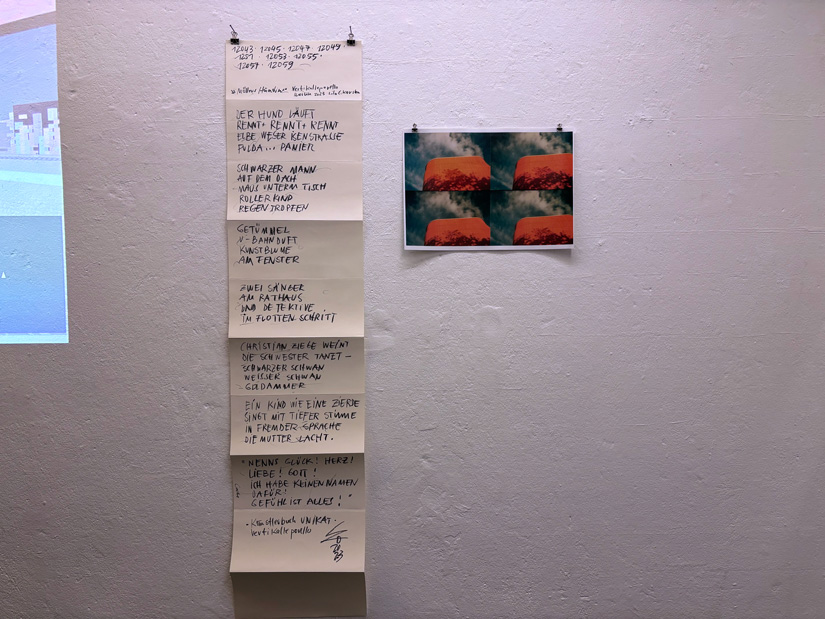 12043 · 12045 · 12047 · 12049 ·
12053 · 12055 ·
12057 · 12059
DER HUND LÄUFT
RENNT + RENNT + RENNT
ELBE WESER ISENSTRASSE
FULDA ... PANIER
SCHWARZER MANN
AUF DEM DACH
MAUS UNTERM TISCH
ROLLERKIND
REGENTROPFEN
GETÜMMEL
U-BAHNDUFT
KUNSTBLUME
AM FENSTER
ZWEI SÄNGER
AM RATHAUS
UND DETEKTIVE
IM FLOTTEN SCHRITT
CHRISTIAN ZIEGE WEINT
DIE SCHWESTER TANZT –
SCHWARZER SCHWAN
WEISSER SCHWAN
EIN KIND WIE EINE ZIERDE
SINGT MIT TIEFER STIMME
IN FREMDER SPRACHE
DIE MUTTER LACHT.
"NENNS GLÜCK! HERZ!
LIEBE! GOTT!
ICH HABE KEINEN NAMEN
DAFÜR!
GEFÜHL IST ALLES!"
· Künstlerbuch UNIKAT ·